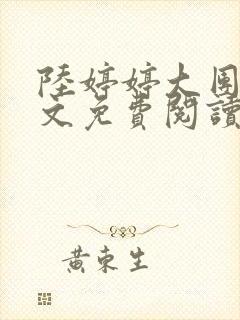 陸婷婷大團
文免費閱讀
黃東生